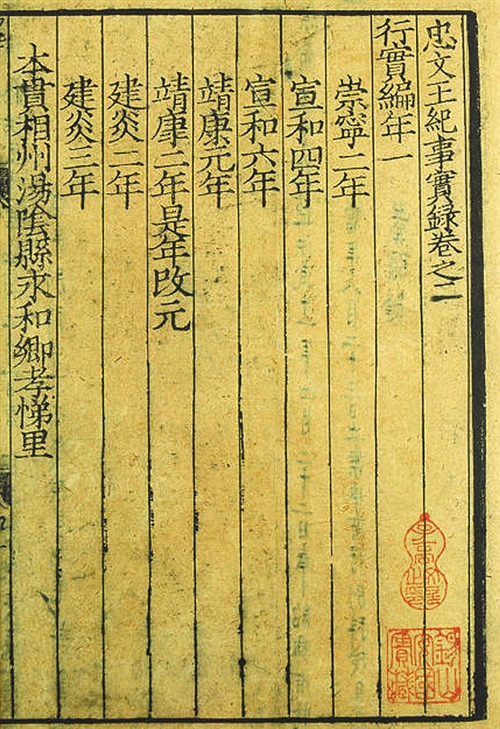 忠文王紀事實録卷之二
行實編年一
崇寧二年
宣和四年
宣和六年
靖康元年
靖康二年是年改元
建炎二年
建炎三年
本貫相州湯陰縣永和鄉孝悌里